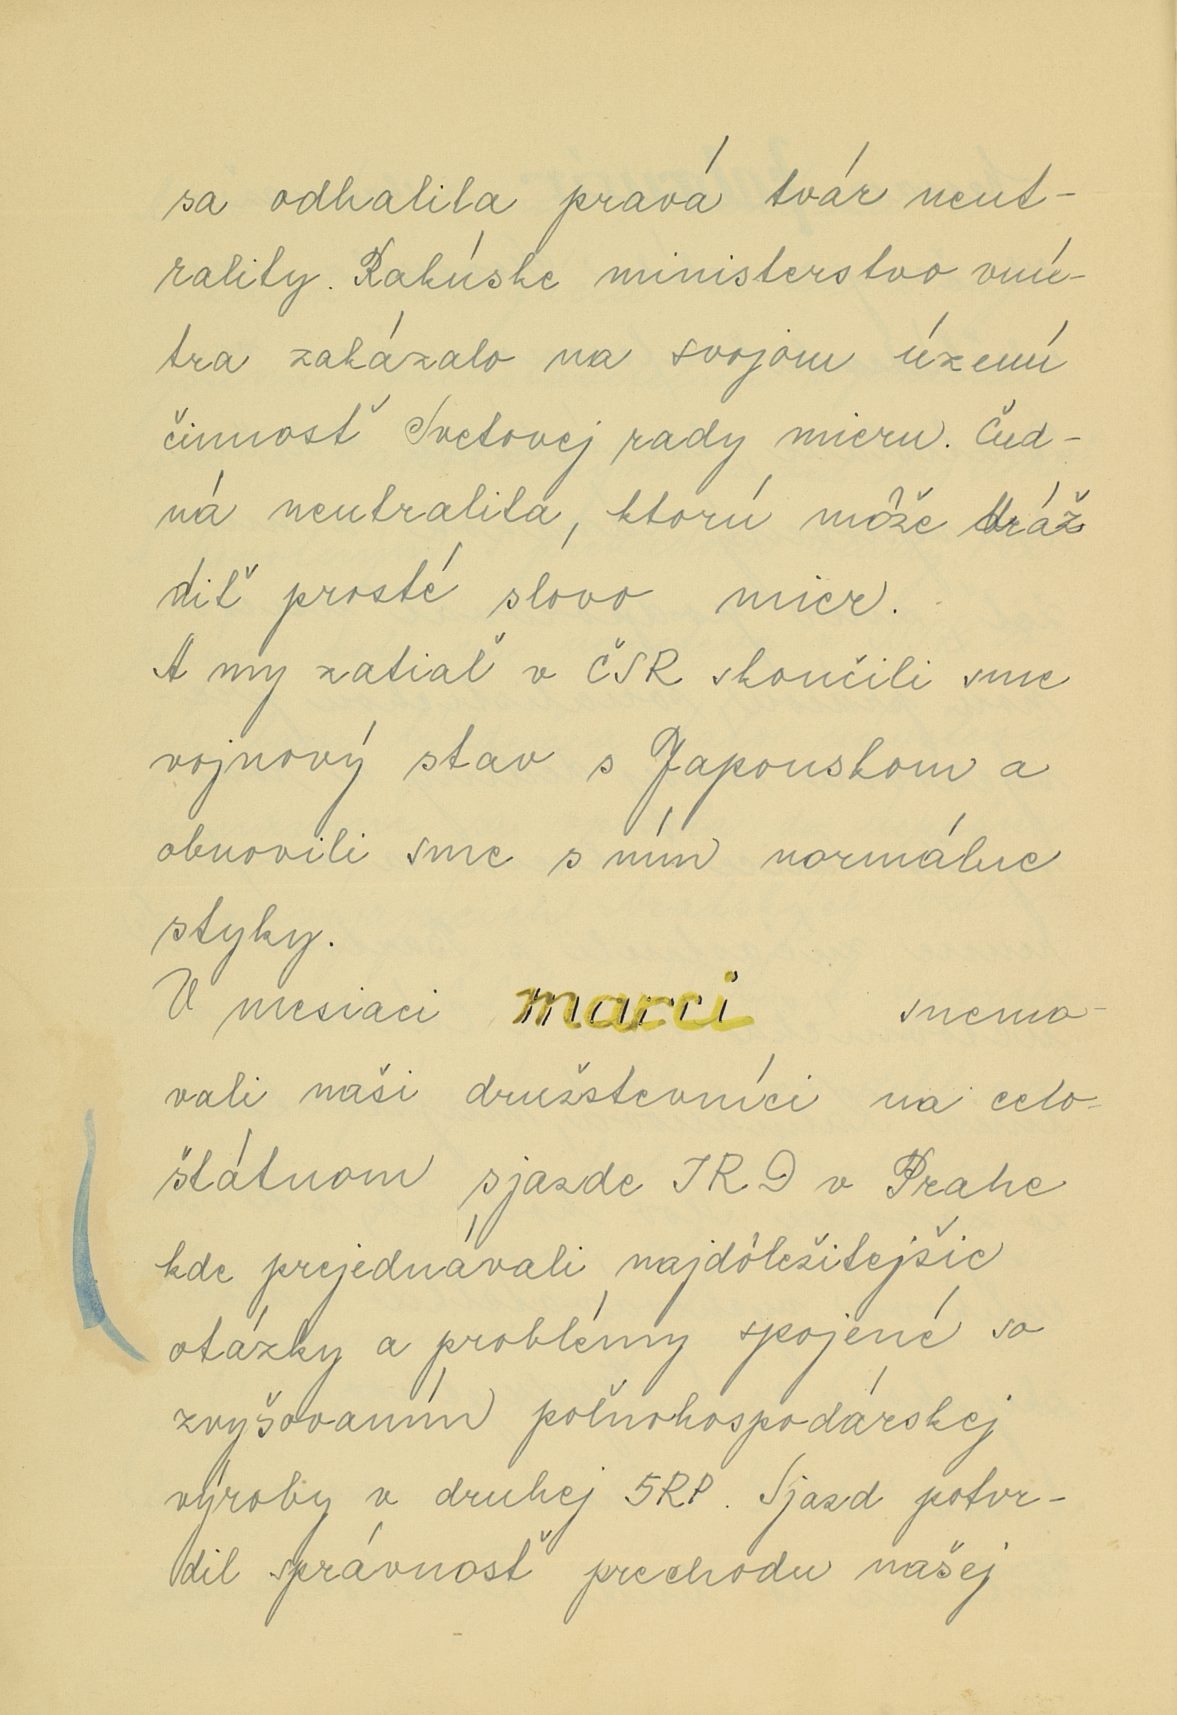 sa odhalila pravá tvár neut-
rality. Rakúske ministerstvo vnú-
tra zakázalo na svojom území
činnosť Svetovej rady mieru. Čud-
ná neutralita, ktorú môže dráž
diť prosté slovo mier.
A my zatiaľ v ČSR skončili sme
vojnový stav s Japonskom a
obnovili sme s ním normálne
styky.
V mesiaci marci snemo-
vali naši družstevníci na celo-
štátnom sjazde JRD v Prahe
kde prejednávali najdôležitejšie
otázky a problémy spojené so
zvyšovaním poľnohospodárskej
výroby v druhej 5RP. Sjazd potvr-
dil správnosť prechodu našej